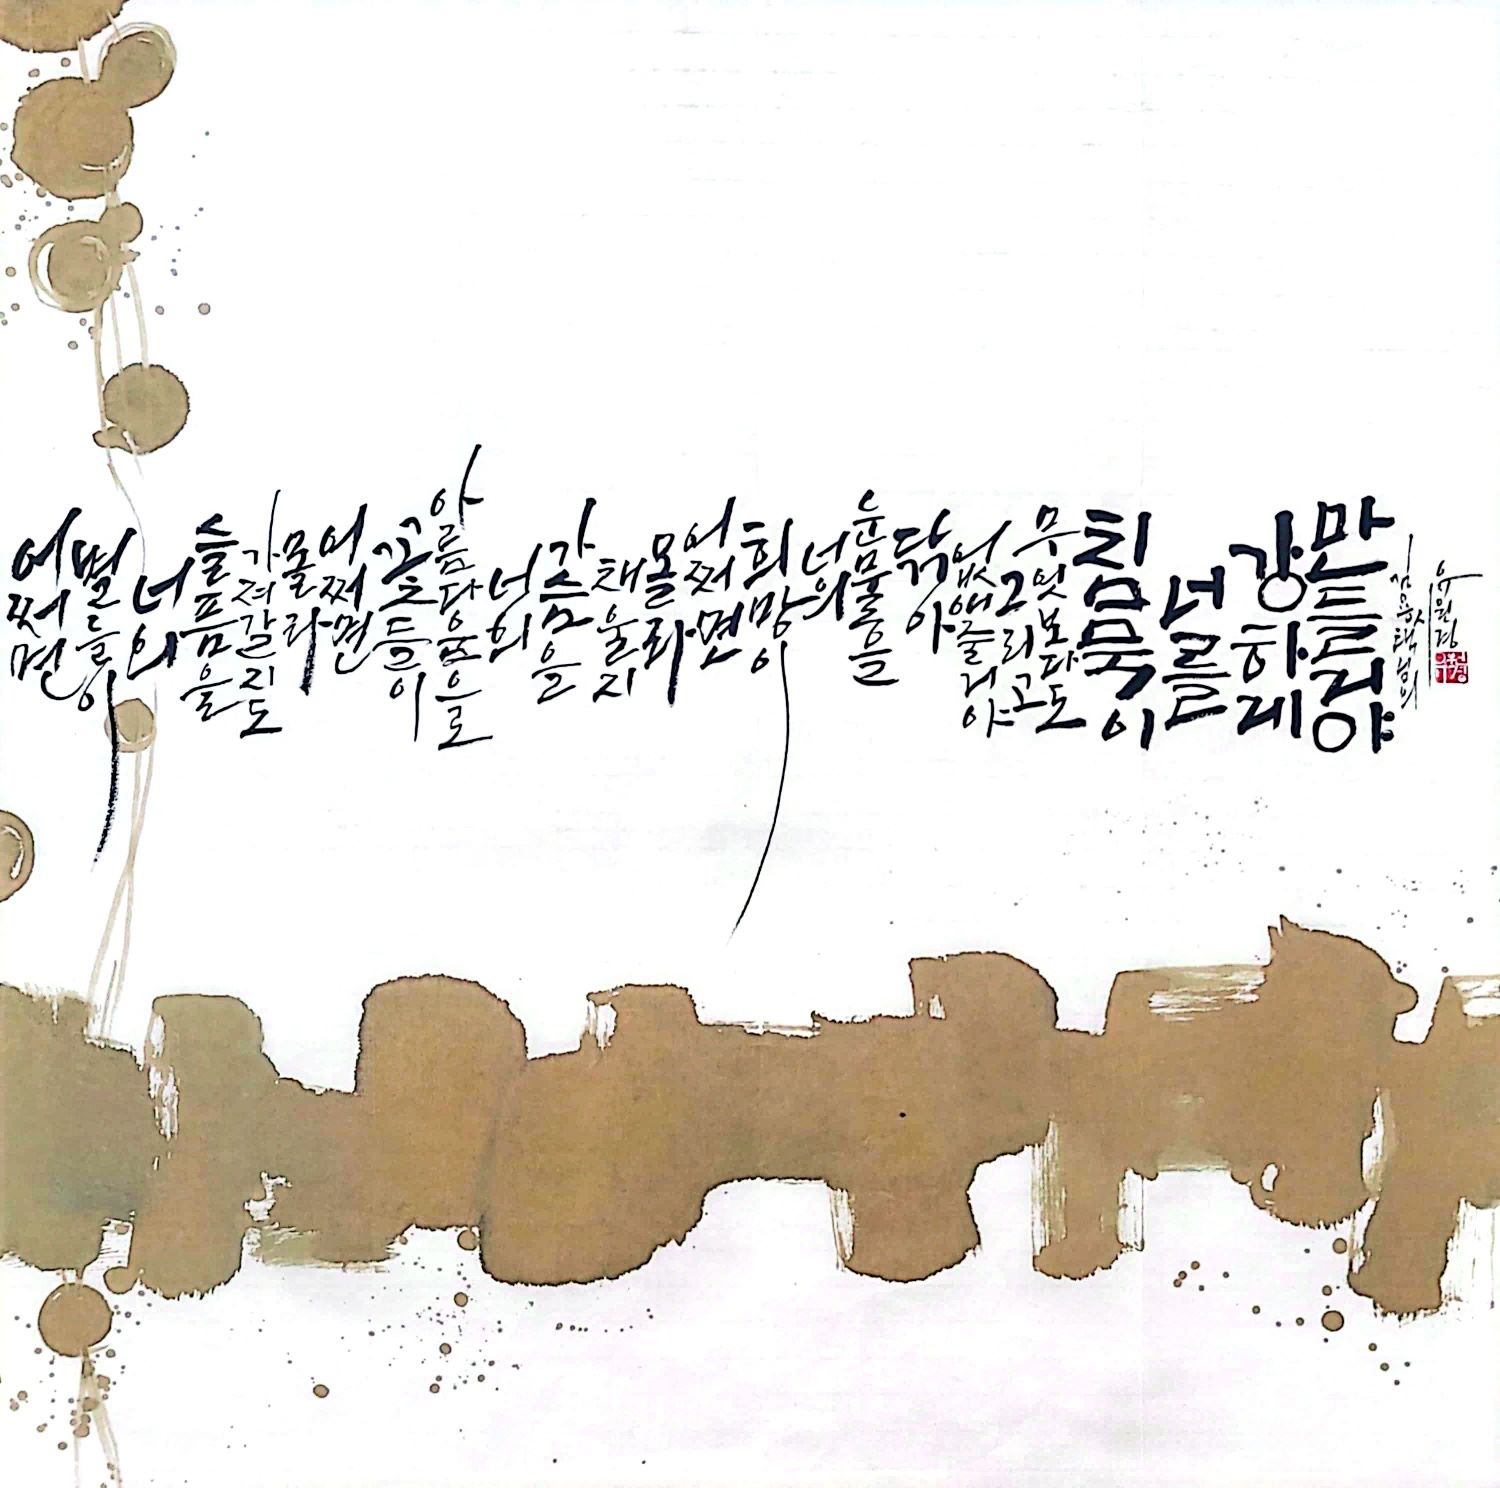 어쩌면
별들이
너의
슬픔을
가져갈지도
몰라
어쩌면
꽃들이
아름다움으로
너의
가슴을
채울지
몰라
어쩌면
희망이
너의
눈물을
닦아
없애줄거야
그리고
무엇보다도
침묵이
너를
강하게
만들거야
김용택님의
유원경